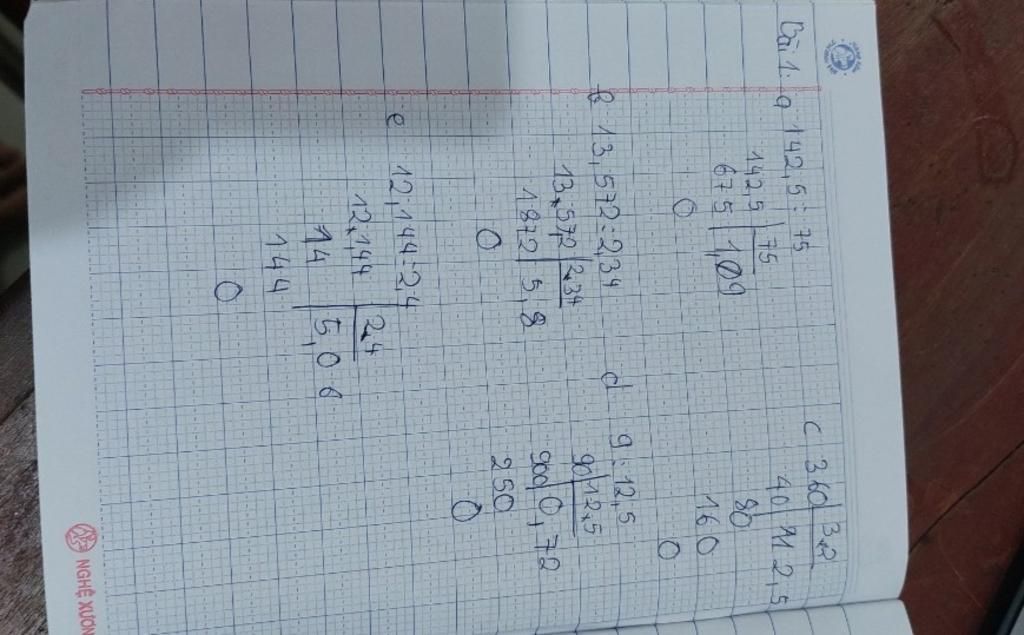 Bài 1:
a 142,5 : 75
1425 | 75
675 | 1,09
0
b 13,572 : 2,34
13,572 | 2,34
1872 | 5,8
0
e 12,144 : 2,4
12,144 | 2,4
14 | 5,06
144
0
c 360 | 3,2
40 | 112,5
80
160
0
d 9 : 12,5
90 | 12,5
900 | 0,72
250
0
NGHỆ XƯƠN